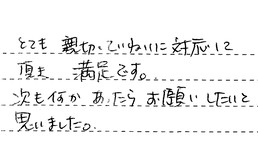 とても 親切、ていねいに 対応して
頂き 満足です。
次も何か あったら お願いしたいと
思いました。